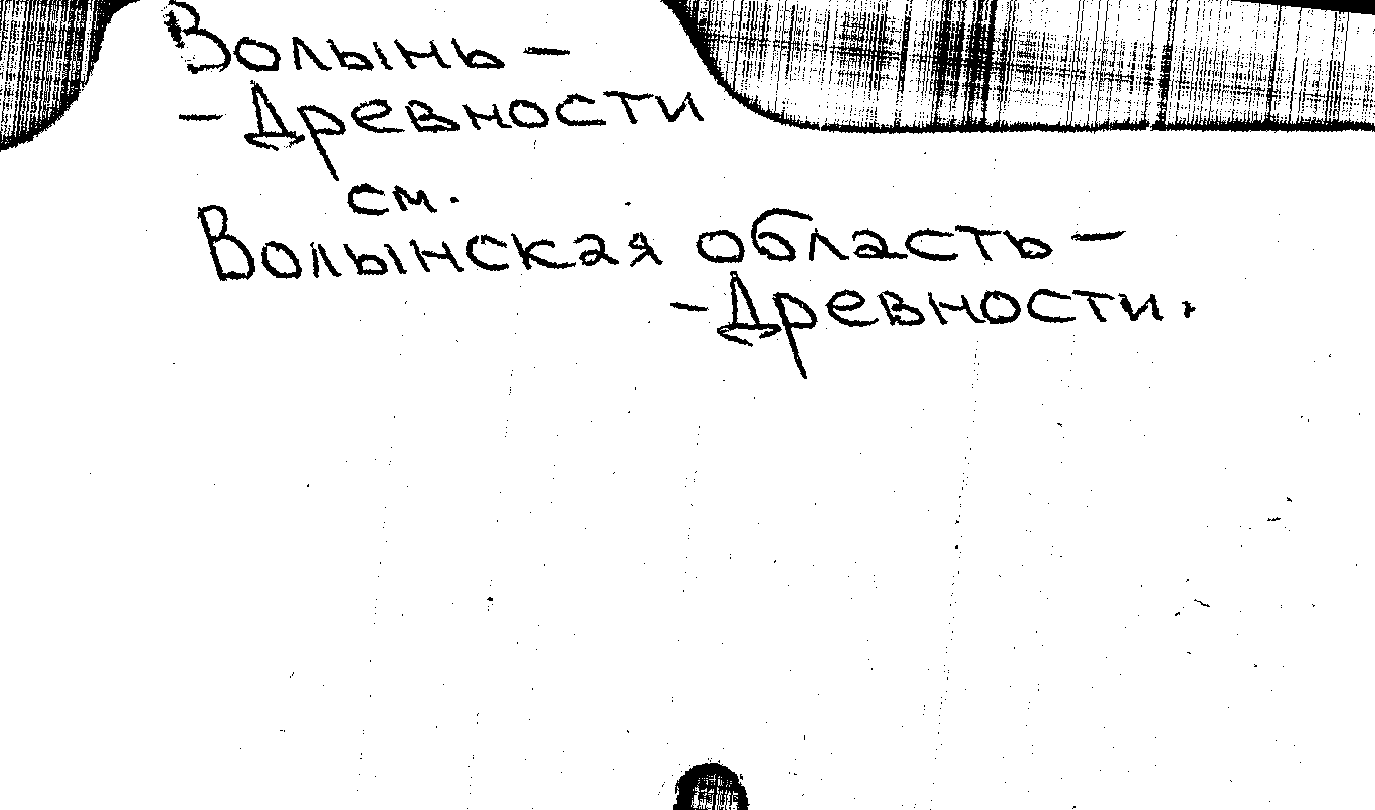 Волынь –
– Древности
см.
Волынская область –
– Древности.